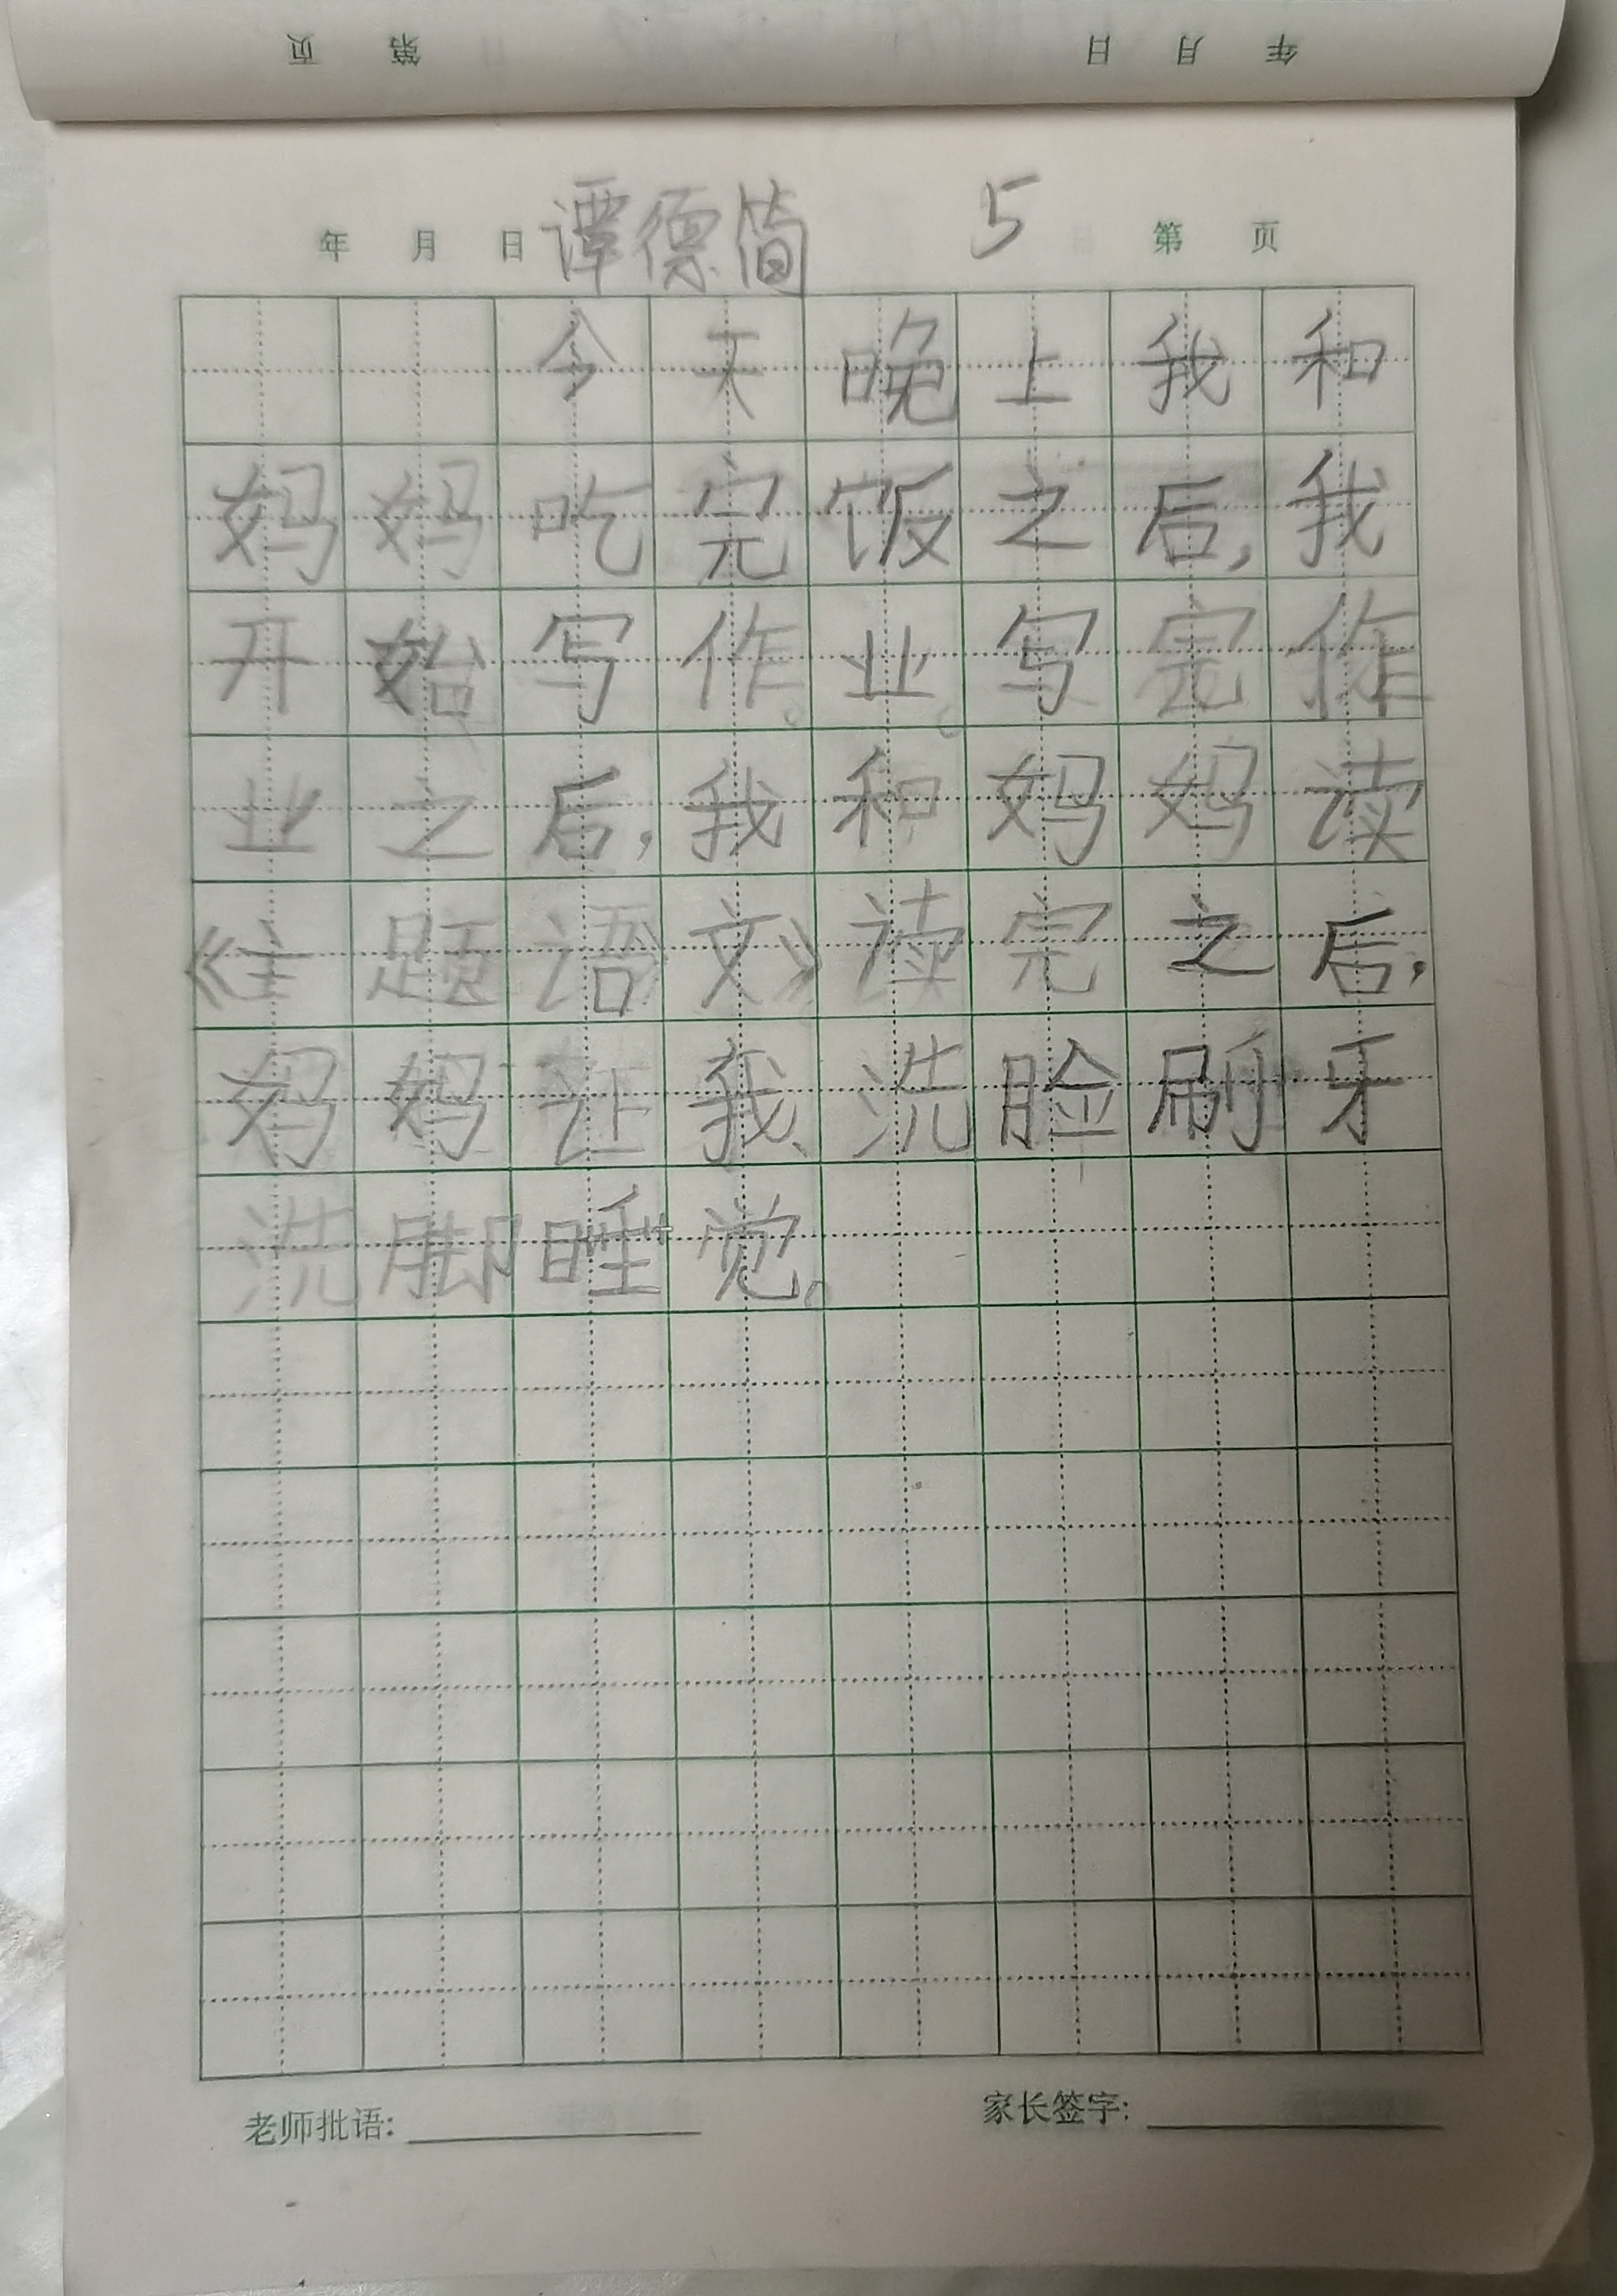 页 第 日 月 年
年 月 日 谭德简 5 第 页
今天晚上我和
妈妈吃完饭之后,我
开始写作业。写完作
业之后,我和妈妈读
《主题语文》读完之后,
妈妈让我洗脸刷牙
洗脚睡觉。
老师批语: 家长签字: